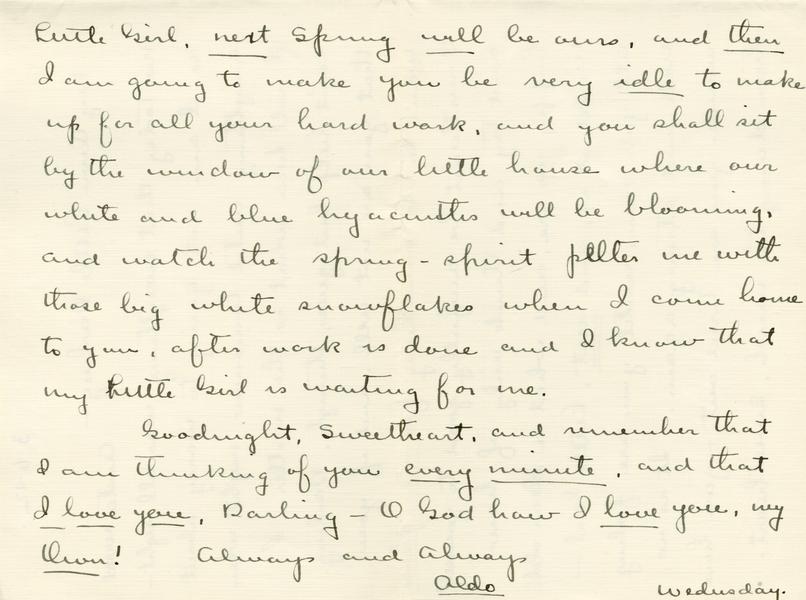 Little Girl, next Spring will be ours, and then
I am going to make you be very idle to make
up for all your hard work, and you shall sit
by the window of our little house where our
white and blue hyacinths will be blooming,
and watch the spring-spirit pellter me with
those big white snowflakes when I come home
to you, after work is done and I know that
my Little Girl is waiting for me.
Goodnight, Sweetheart, and remember that
I am thinking of you every minute, and that
I love you, Darling - O God how I love you, my
Own! Always and Always
Aldo
Wednesday.